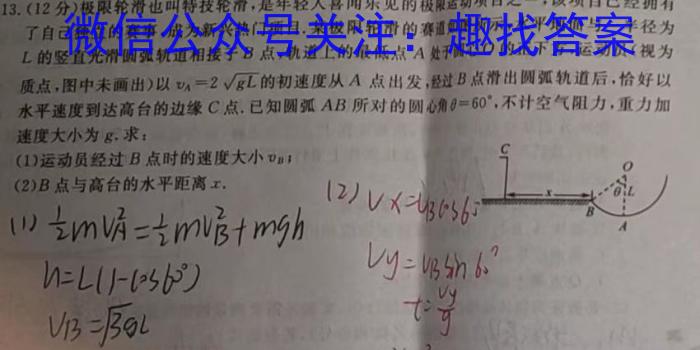 13.(12分)极限轮滑也叫特技轮滑,是年轻人喜闻乐见的极限运动项目之一,该项目已经拥有
微信公众号关注:趣找答案
L的竖直光滑圆弧轨道相接于B点,轨道上的最低点A处于
质点,图中未画出)以 vA=2√gL的初速度从A点出发,经过B点滑出圆弧轨道后,恰好以
水平速度到达高台的边缘C点.已知圆弧AB所对的圆心角θ=60°,不计空气阻力,重力加
速度大小为g.求:
(1)运动员经过B点时的速度大小vB;
(2)B点与高台的水平距离x.
C
x
O
θ
L
B
A
(1) ½mVA²=½mVB²+mgh
h=L(1-cos60°)
VB=√3gL
(2) Vx=VBcos6
Vy=VBsin60°
t=Vy/g